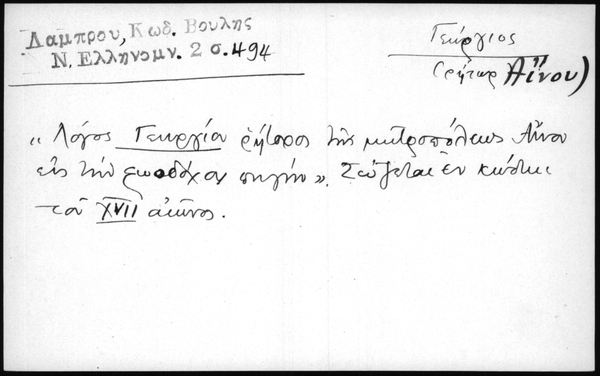 Λαμπρου, Κωδ. Βουλης
Ν. Ελληνομν. 2 σ. 494
Γεώργιος
(ρήτωρ Αἴνου)
"Λόγος Γεωργίου ῥήτορος τῆς μητροπόλεως Αἴνου
εἰς τὴν ζωοδόχον πηγήν". Σῴζεται ἐν κώδικι
τοῦ XVII αἰῶνος.